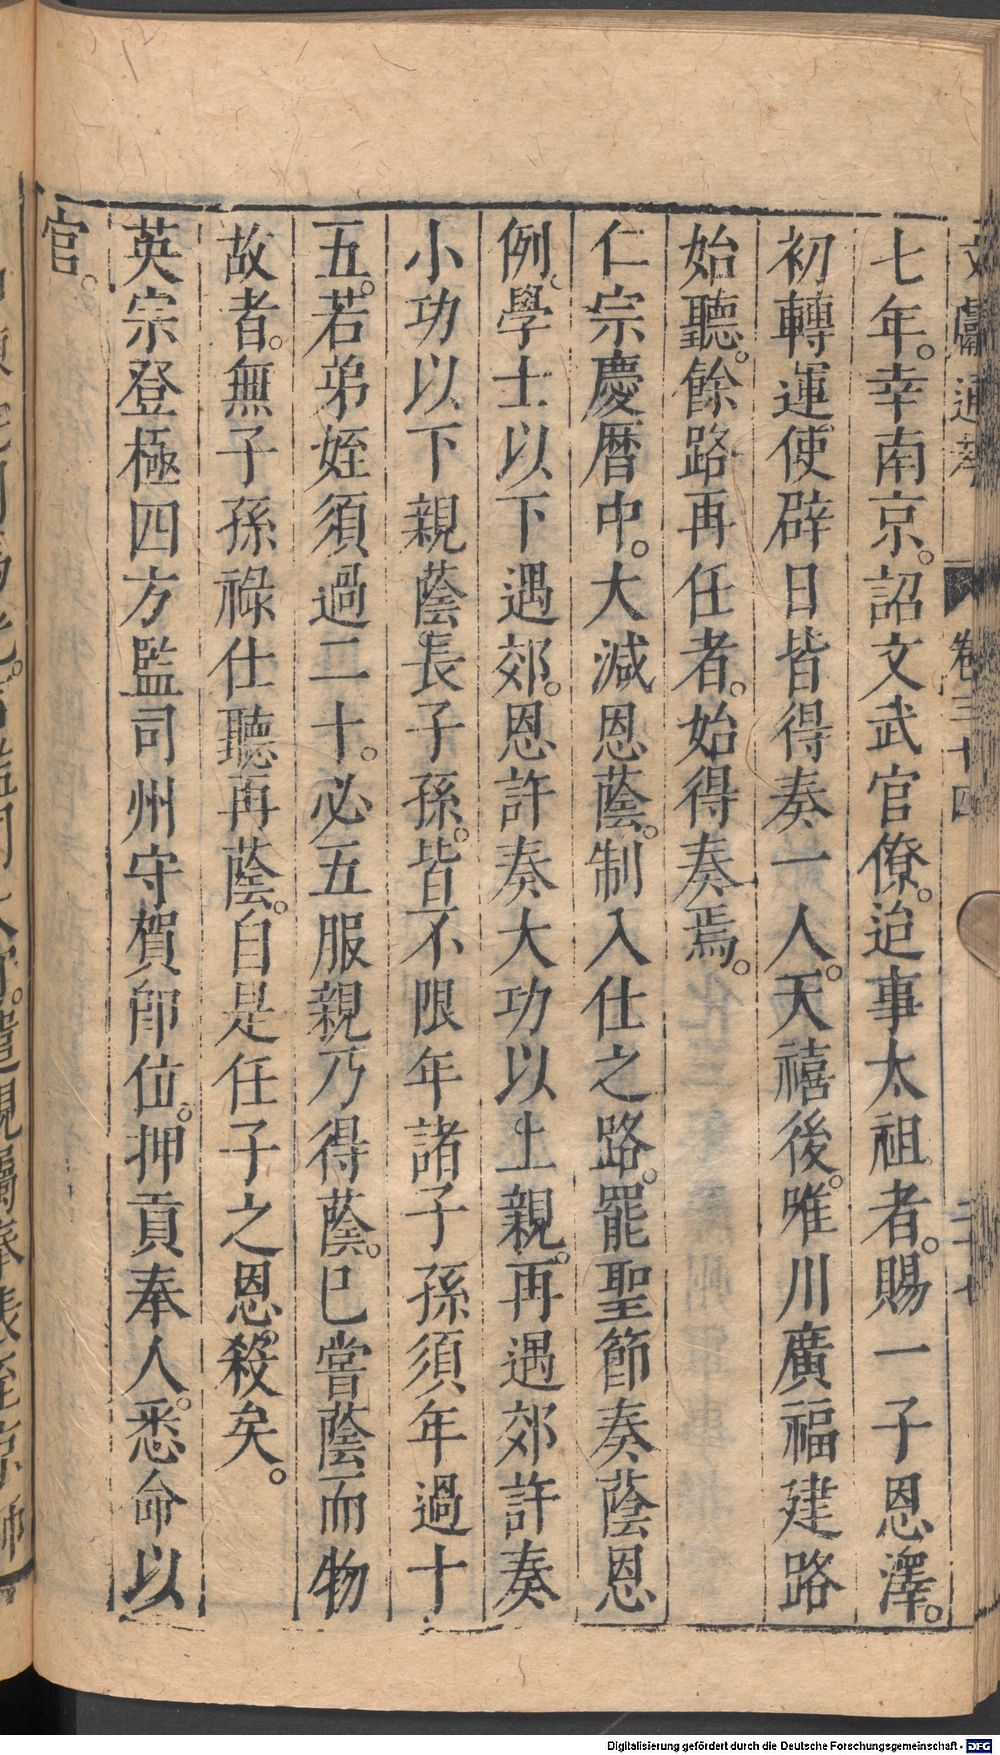 七年。幸南京。詔文武官僚。迨事太祖者。賜一子恩澤。
初轉運使辟日皆得奏一人。天禧後。唯川廣福建路
始聽。餘路再任者。始得奏焉。
仁宗慶曆中。大減恩蔭。制入仕之路。罷聖節奏蔭恩
例。學士以下遇郊。恩許奏大功以上親。再遇郊許奏
小功以下親蔭。長子孫。皆不限年諸子孫須年過十
五。若弟姪須過二十。必五服親乃得蔭。已嘗蔭而物
故者。無子孫祿仕聽再蔭。自是任子之恩。殺矣。
英宗登極四方監司州守賀即位。押貢奉人。悉命以
官。
卷三十四
Digitalisierung gefördert durch die Deutsche Forschungsgemeinschaft - DFG